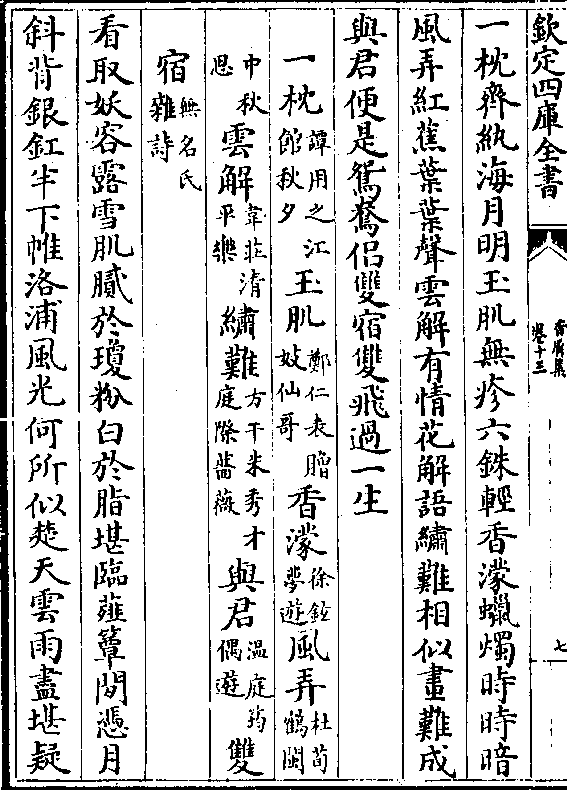 欽定四庫全書
香屑集
卷十三
七
一枕齊紈海月明玉肌無疹六銖輕香濛蠟燭時時暗
風弄紅蕉葉葉聲雲解有情花解語繡難相似畫難成
與君便是鴛鴦侶雙宿雙飛過一生
一枕譚用之江館秋夕玉肌鄭仁表贈妓仙哥香濛徐鉉夢遊風弄杜荀鶴閩
中秋思雲解韋莊清平樂繡難方干朱秀才庭際薔薇與君温庭筠偶遊雙
宿無名氏雜詩
看取妖容露雪肌膩於瓊粉白於脂堪臨薤簟閒憑月
斜背銀釭半下帷洛浦風光何所似楚天雲雨盡堪疑